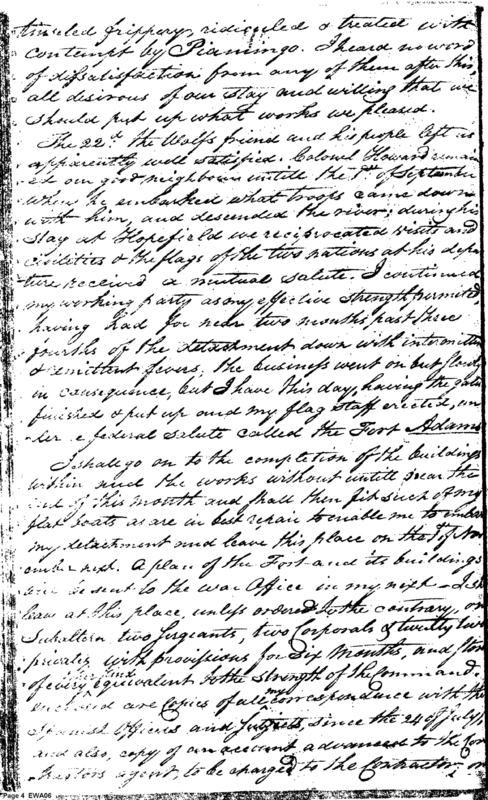 tinseled frippery, ridiculed & treated with
contempt by Piamingo. I heard no word
of dissatisfaction from any of them after this,
all desirous of our stay and willing that we
should put up what works we pleased.
The 22d. the Wolfs friend and his people left us
apparently well satisfied. Colonel Howard remain
ed our good neighbour untill the 1st. of September
when he embarked what troops came down
with him, and descended the river; during his
stay at Hopefield we reciprocated visits and
civilities & the flags of the two nations at his depar
ture received a mutual salute. I continued
my working party as my effective strength permited
having had for near two months past three
fourths of the detachment down with intermitten
& remittent fevers; the business went on but slowly
in consequence, but I have this day, having the gates
finished & put up and my flag staff erected, un
der a federal salute called the Fort Adams
I shall go on to the completion of the buildings
within and the works without untill near the
end of this month and shall then fit such of my
flat boats as are in best repair to enable me to embark
my detachment and leave this place on the 1st. of Nov
ember next. A plan of the Fort and its buildings
will be sent to the war Office in my next – I shall
leave at this place, unless ordered to the contrary, one
Subaltern two Serjeants, two Corporals & twenty two
privates with provisions for Six Months, and Stores
of every other kind equivalent to the strength of the Command.
Enclosed are Copies of all my correspondence with the
Spanish Officers and Subjects, since the 24 of July,
and also, copy of an account advanced to the Con
tractors agent, to be charged to the Contractor on
Page 4 EWA06